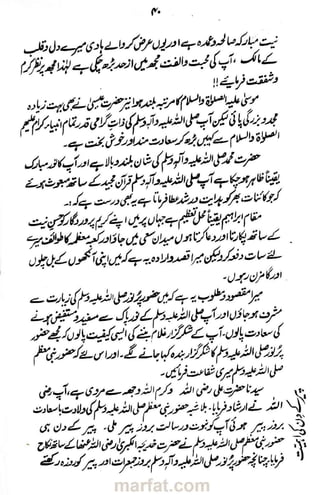 ۴۰
نیت مبارکہ صالحہ و عمدہ ہے اور یوں عرض کروا لے ہادی میرے دل و قلب
کے مالک، آپ کی محبت و الفت مجھ میں از حد بڑھ چکی ہے لہٰذا مجھ پر نظر کرم
و شفقت فرمایئے!!
موسیٰ علیہ الصلاۃ والسلام کا مرتبہ بلند ہوا نیز حضرت عیسیٰ نے بھی بہت زیادہ
مجد و بزرگی پائی لیکن آپ صلی اللہ علیہ وآلہ وسلم کی ذات گرامی قدر تمام انبیاء کرام علیہم
الصلاۃ والسلام سے کہیں بڑھ کر سعادت مند اور خوش بخت ہے۔
حضرت محمد صلی اللہ علیہ وآلہ وسلم کی شان بلند و بالا ہے اور آپ کا نور مبارک
یقیناً ظاہر ہو چکا ہے آپ صلی اللہ علیہ وآلہ وسلم قرآن مجید کے ساتھ مبعوث ہوئے
کہ جو کائنات بھر کو ہدایت اور رشد عطا فرماتا ہے یہی درست ہے کہ:۔
مقام ابراہیم یقیناً محل تعظیم ہے جہاں پر میں اپنے کریم پروردگار کو حسن نیت
کے ساتھ پکارتا اور دعا کرتا ہوں میدان سعی میں جاؤں اور کعبہ معظمہ کا طواف پورے
لئے سات دفعہ کروں لیکن میرا قصد و ارادہ یہ ہے کہ میں اپنی آنکھوں کے بل چلوں
اور گامزن رہوں۔
میرا مقصود و مطلوب یہ ہے کہ میں حضور پر نور صلی اللہ علیہ وسلم کی زیارت سے
مشرف ہو جاؤں اور آپ صلی اللہ علیہ وسلم کے نور پاک سے مستفید و مستفیض ہونے
کی سعادت پالوں۔ آپ کے شکر گزار غلام بننے کی ایسی کیفیت پالوں کہ مجھے حضور
پر نور صلی اللہ علیہ وسلم کا شکر گزار بندہ کہا جانے لگے۔ اور اس لئے کہ حضور نبی معظم
صلی اللہ علیہ وسلم میری شفاعت فرمائیں۔
سیدنا حضرت علی رضی اللہ وکرم اللہ وجہہ سے مروی ہے، آپ رضی
اللہ نے ارشاد فرمایا، بلاشبہ حضور نبی معظم صلی اللہ علیہ وسلم کی ولادت باسعادت
بروز پیر ہوئی آپ کو نبوت و رسالت بروز پیر ملی۔ پیر کے دن ہی
حضور نبی معظم صلی اللہ علیہ وسلم نے حضرت خدیجۃ الکبریٰ رضی اللہ عنھا کے ساتھ نکاح
فرمایا، چنانچہ حضور صلی اللہ علیہ وآلہ وسلم بروز جمعرات اور پیر کو روزہ رکھتے
پیر کے دن کی اہمیت
marfat.com